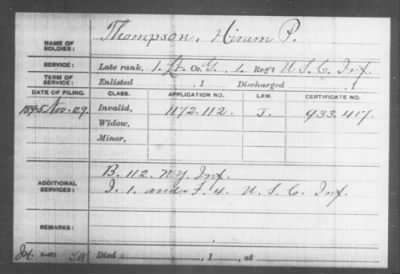 NAME OF SOLDIER: Thompson, Hiram P.
SERVICE: Late rank, 1. Lt. Co. G, 1. Reg't U. S. C. Inf.
TERM OF SERVICE: Enlisted , 1 Discharged , 1
DATE OF FILING. CLASS. APPLICATION NO. LAW. CERTIFICATE NO.
1895 Nov. 29. Invalid, 1172.112 J. 933.417.
Widow,
Minor,
ADDITIONAL SERVICES: B. 112. N.Y. Inf.
I. 1. and F. 4. U. S. C. Inf.
REMARKS:
Died , 1 , at